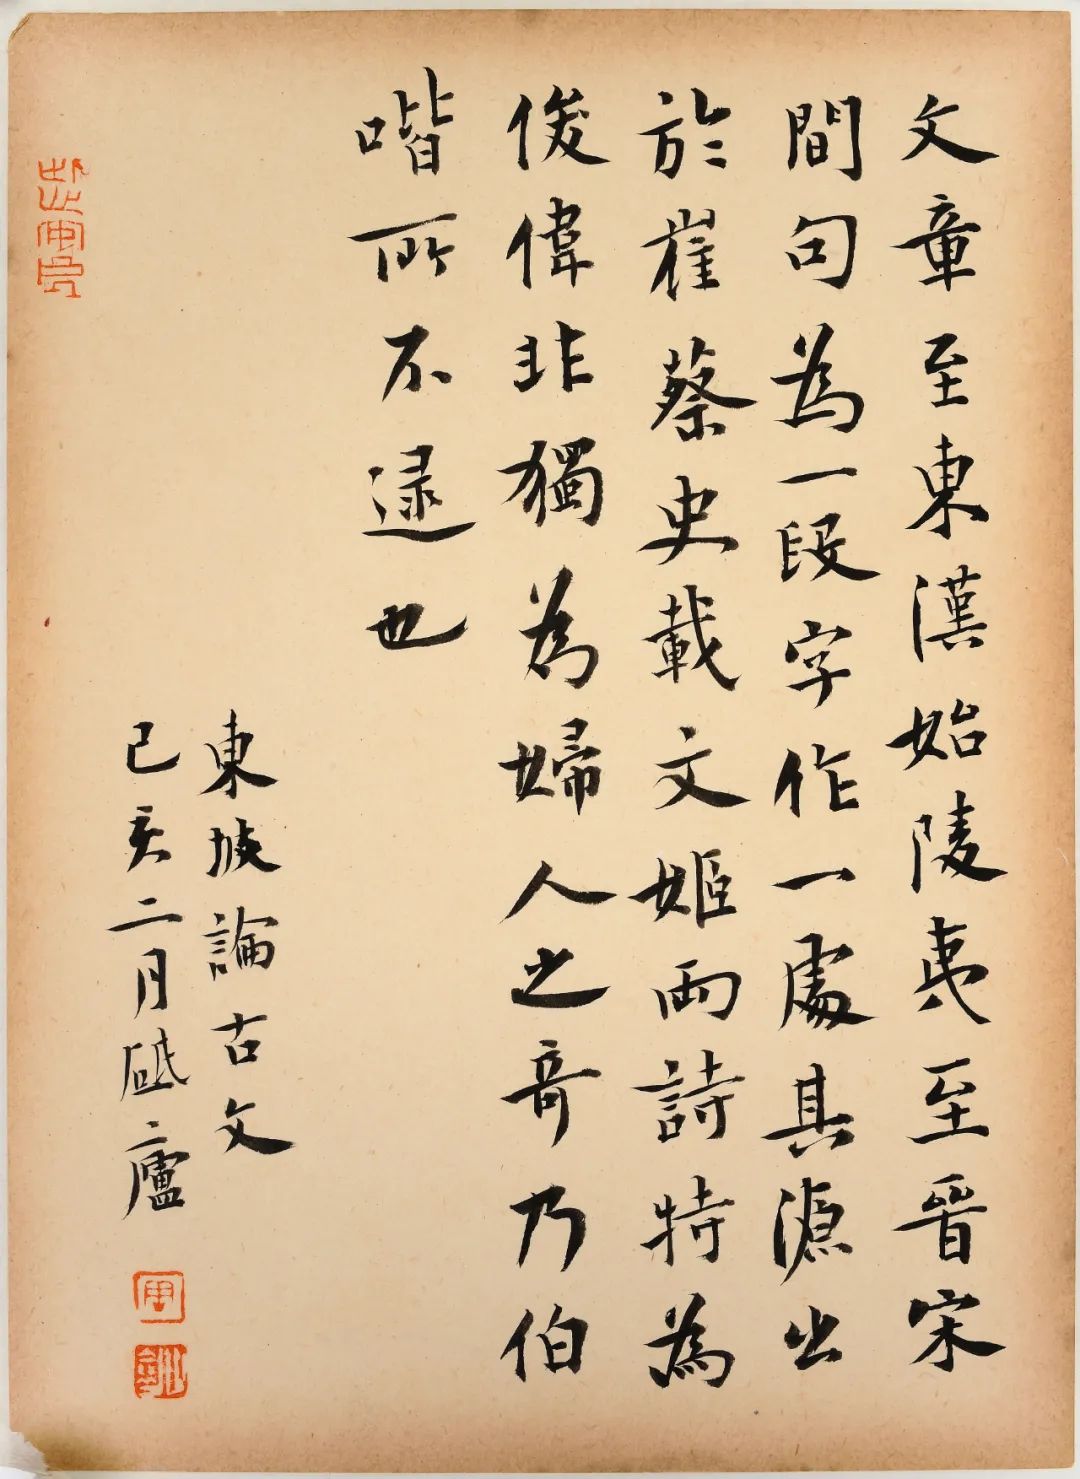 文章至東漢始陵夷至晉宋
間句為一段字作一處其源出
於崔蔡史載文姬兩詩特為
俊偉非獨為婦人之奇乃伯
喈所不逮也
東坡論古文
己亥二月砥廬